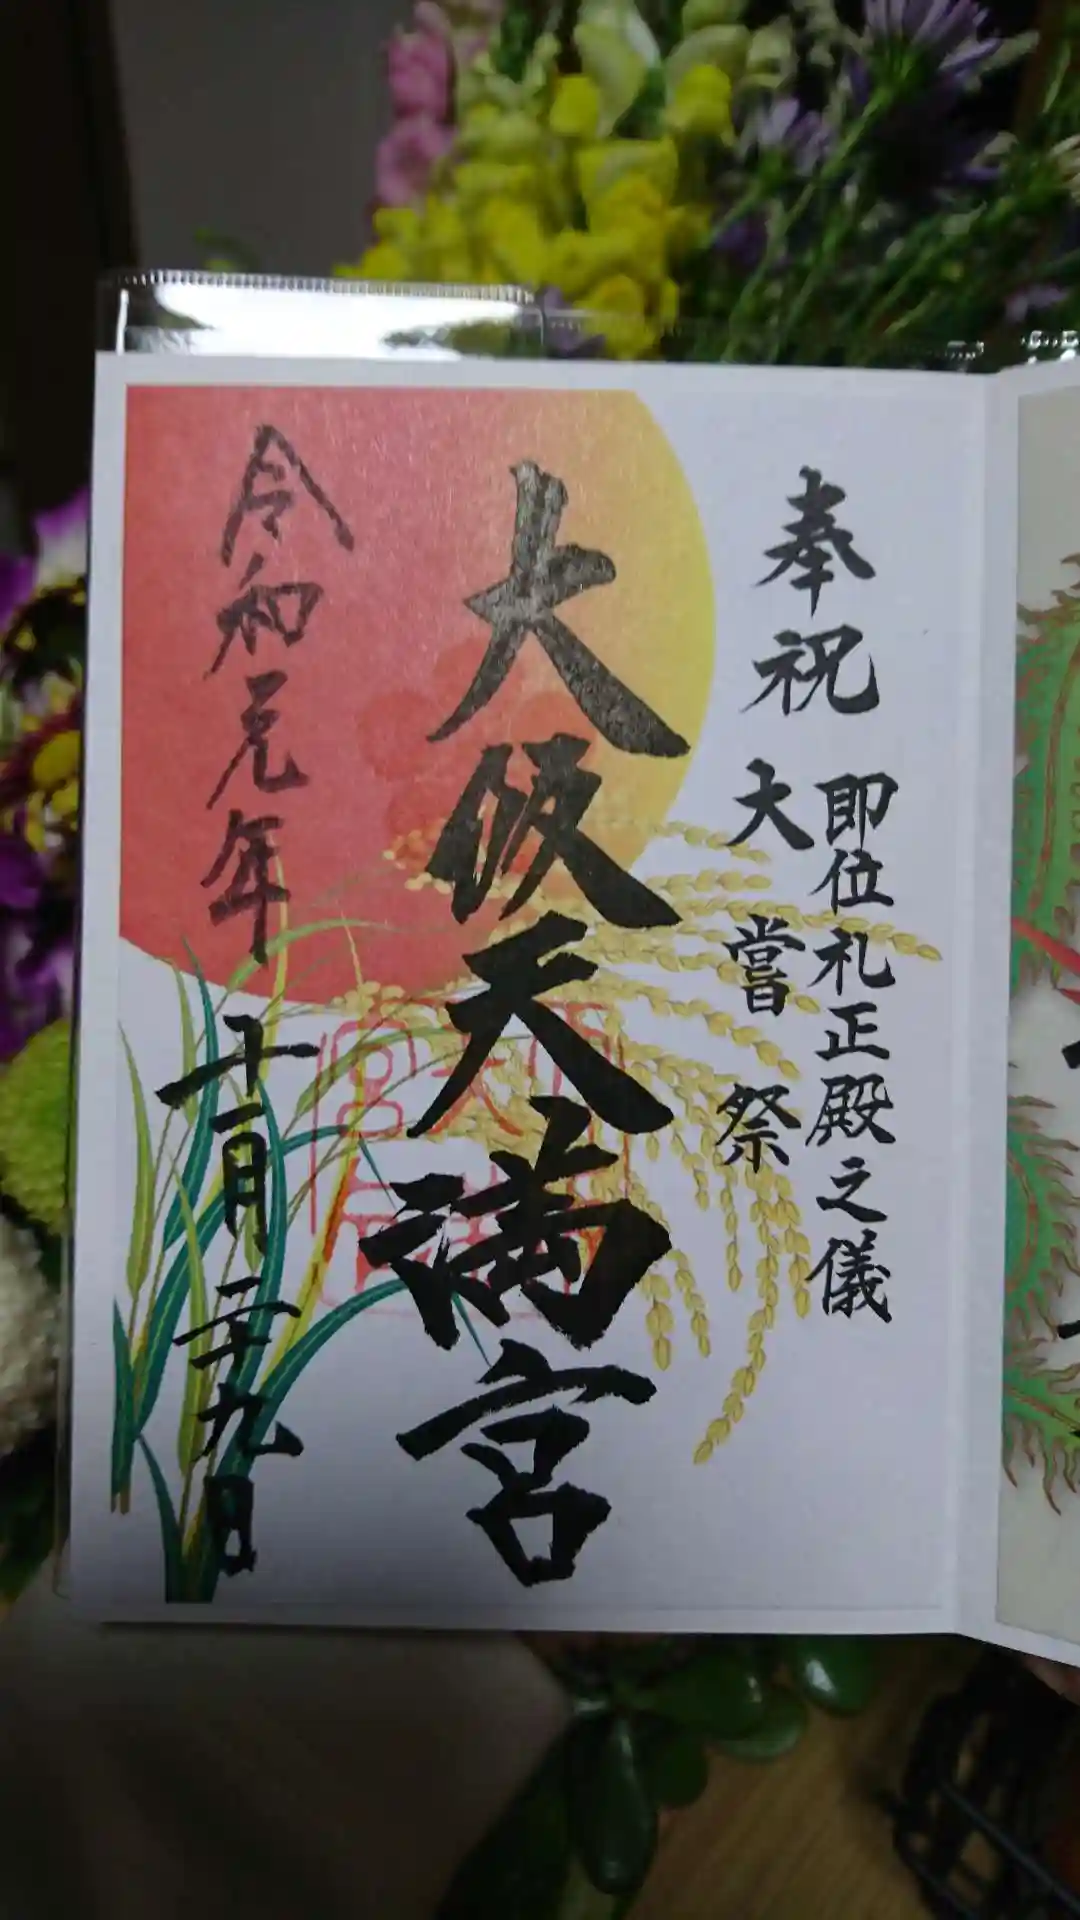 奉祝
即位礼正殿之儀
大嘗祭
大阪天満宮
令和元年
十一月二十九日